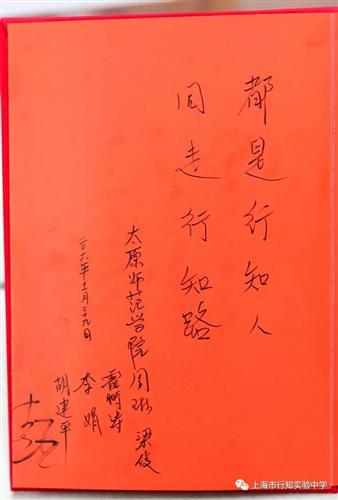 都是行知人
同走行知路
太原师范学院 周 梁俊
李娟
胡建平
二〇一六年十一月二十九日
上海市行知实验中学